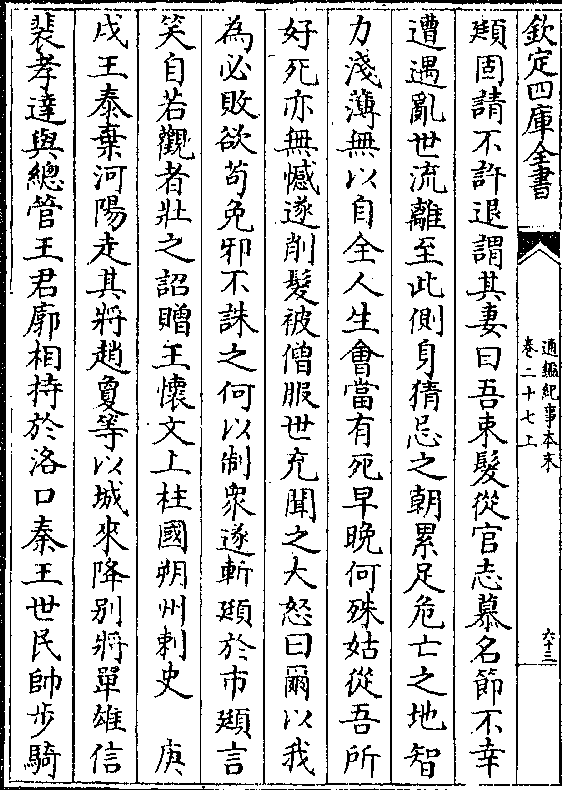 欽定四庫全書
通鑑紀事本末
卷二十七上
六十三
頲固請不許退謂其妻曰吾束髮從官志慕名節不幸
遭遇亂世流離至此側身猜忌之朝累足危亡之地智
力淺薄無以自全人生會當有死早晚何殊姑從吾所
好死亦無憾遂削髮被僧服世充聞之大怒曰爾以我
為必敗欲苟免邪不誅之何以制衆遂斬頲於市頲言
笑自若觀者壯之詔贈王懷文上柱國朔州刺史　庚
戌王泰棄河陽走其將趙夐等以城來降别將單雄信
裴孝達與總管王君廓相持於洛口秦王世民帥步騎